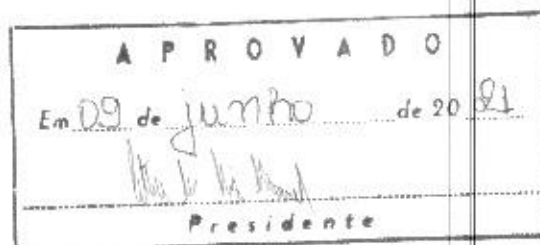 APROVADO
Em 09 de junho de 20 21
Presidente